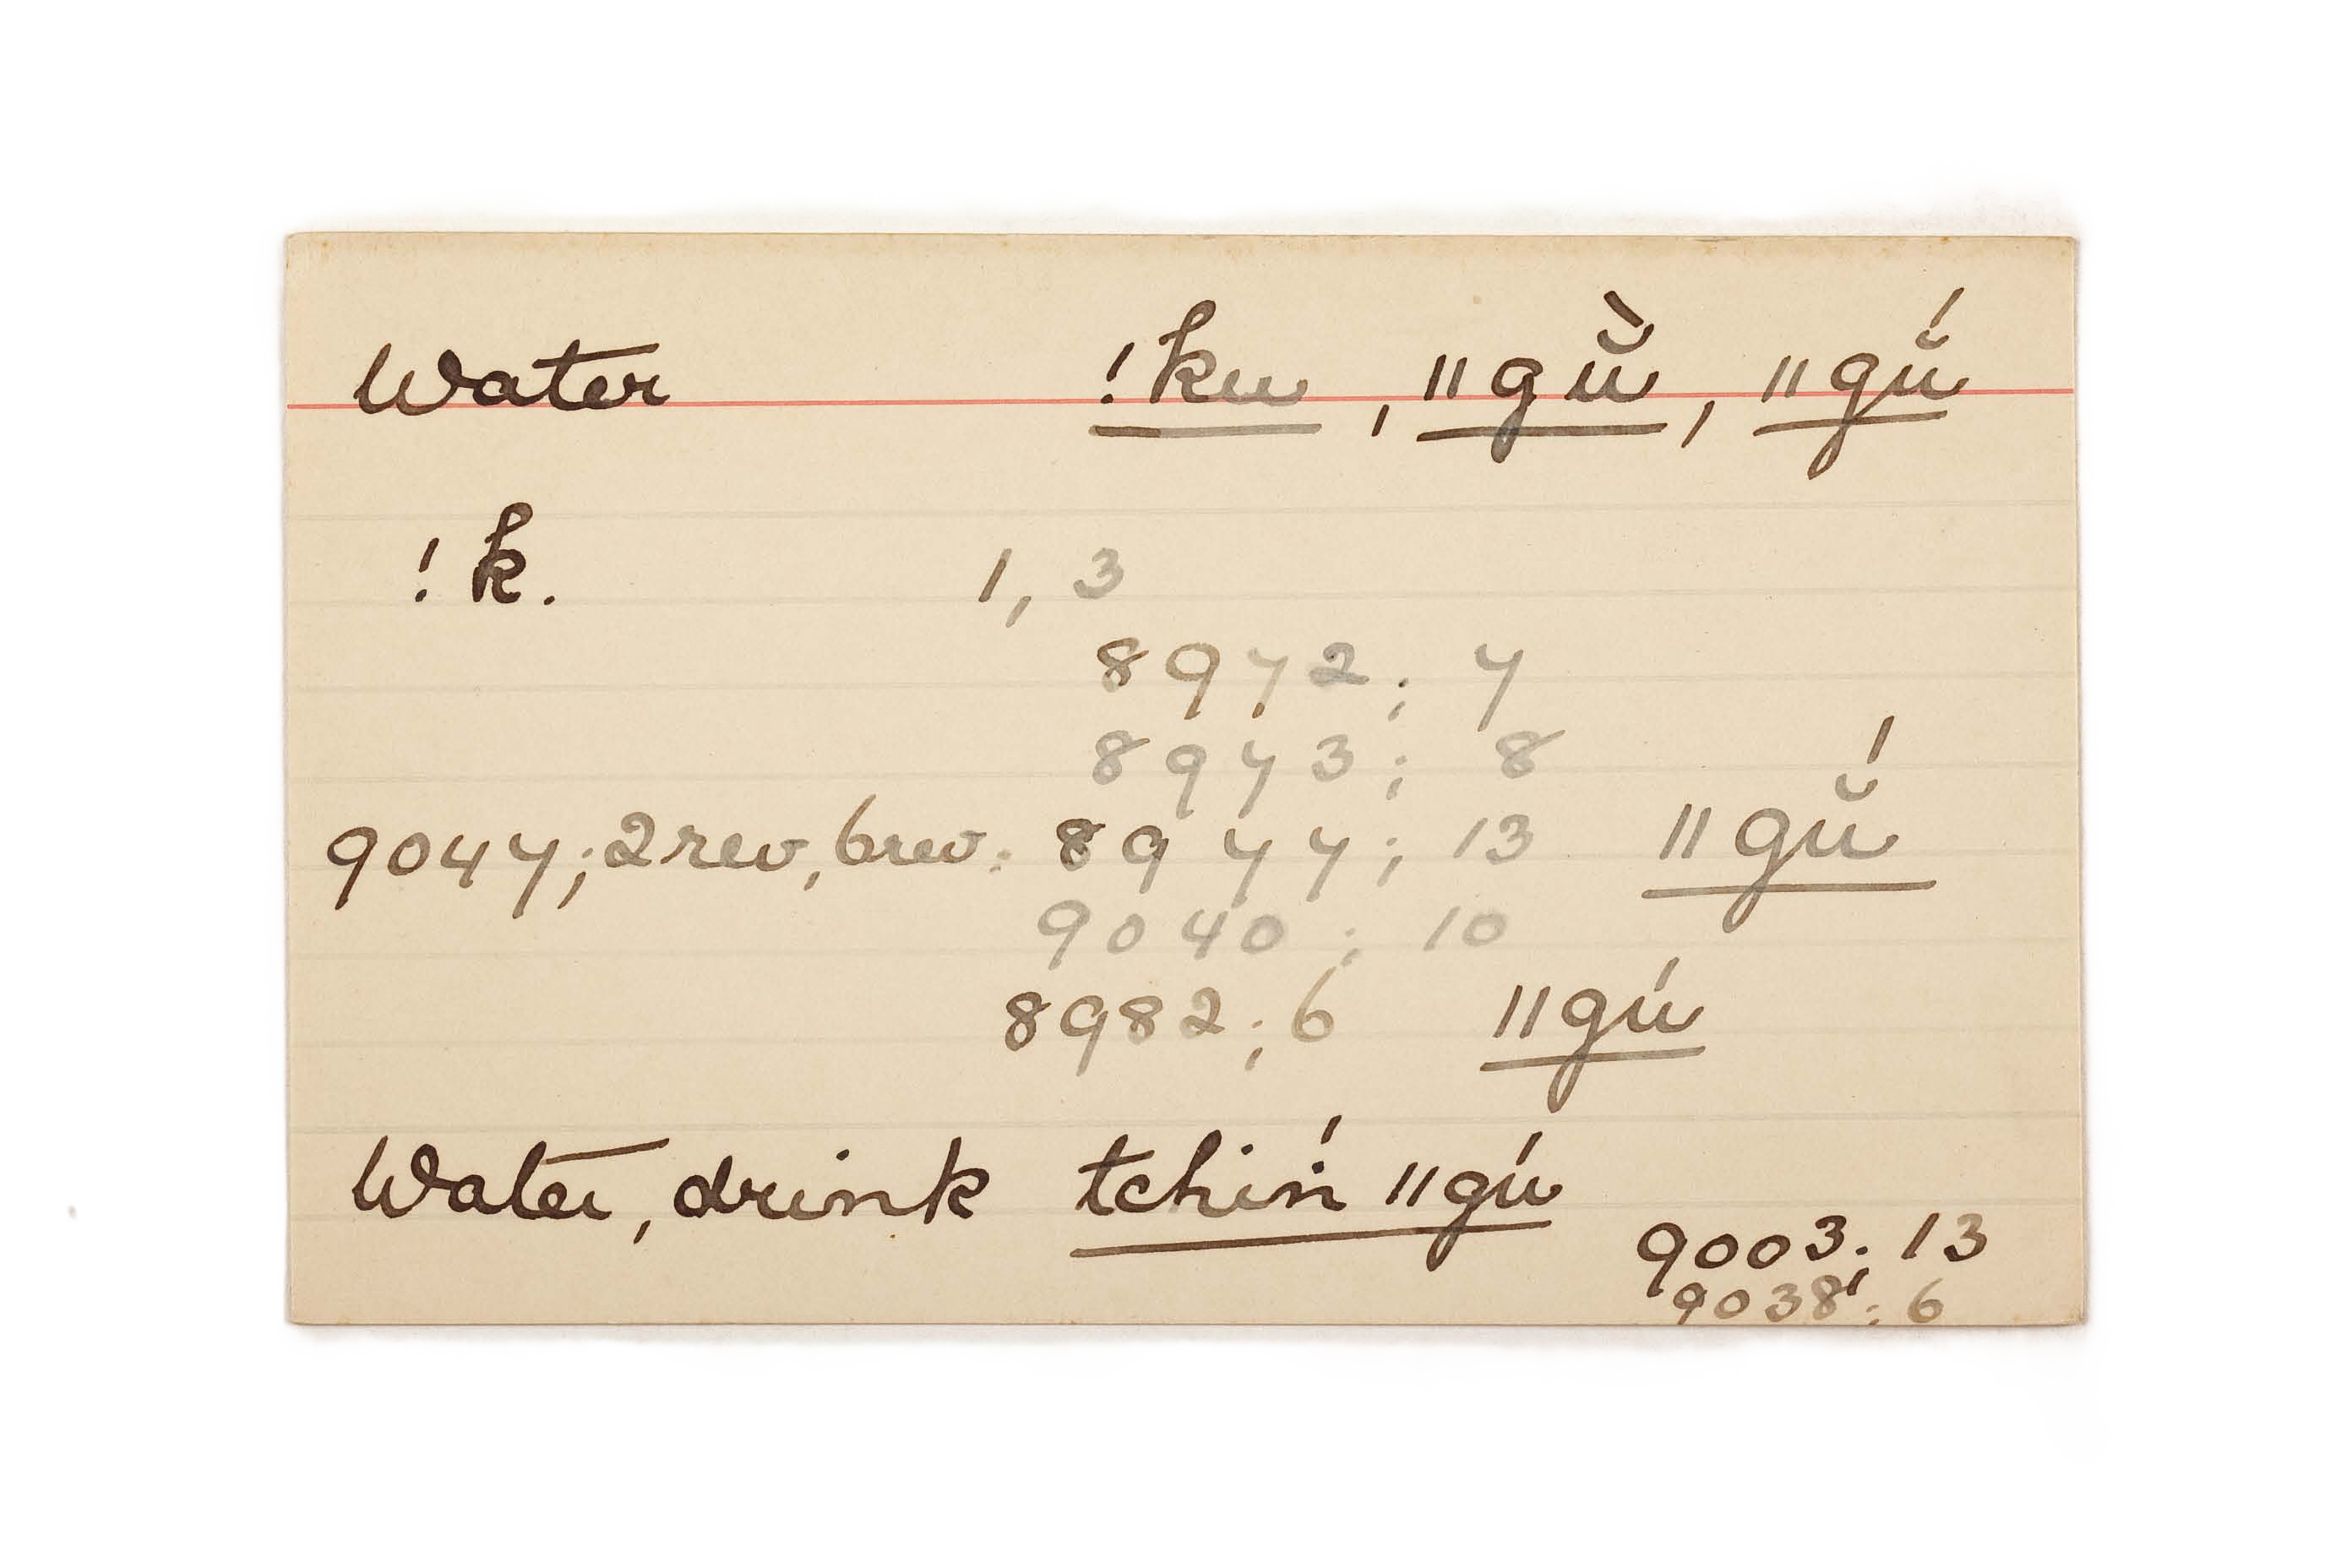 Water !ku, ǁgŭ̀, ǁgŭ́
!k. 1, 3
8972; 7
8973; 8
9047; 2rev, 6rev; 8977; 13 ǁgŭ́
9040; 10
8982; 6 ǁgú
Water, drink tchiń ǁgú
9003; 13
9038; 6